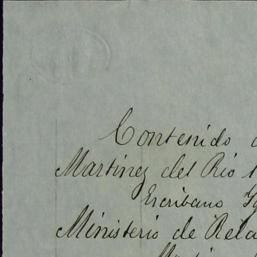 Contenido
Martinez del Rio
Escribano
Ministerio de Rela